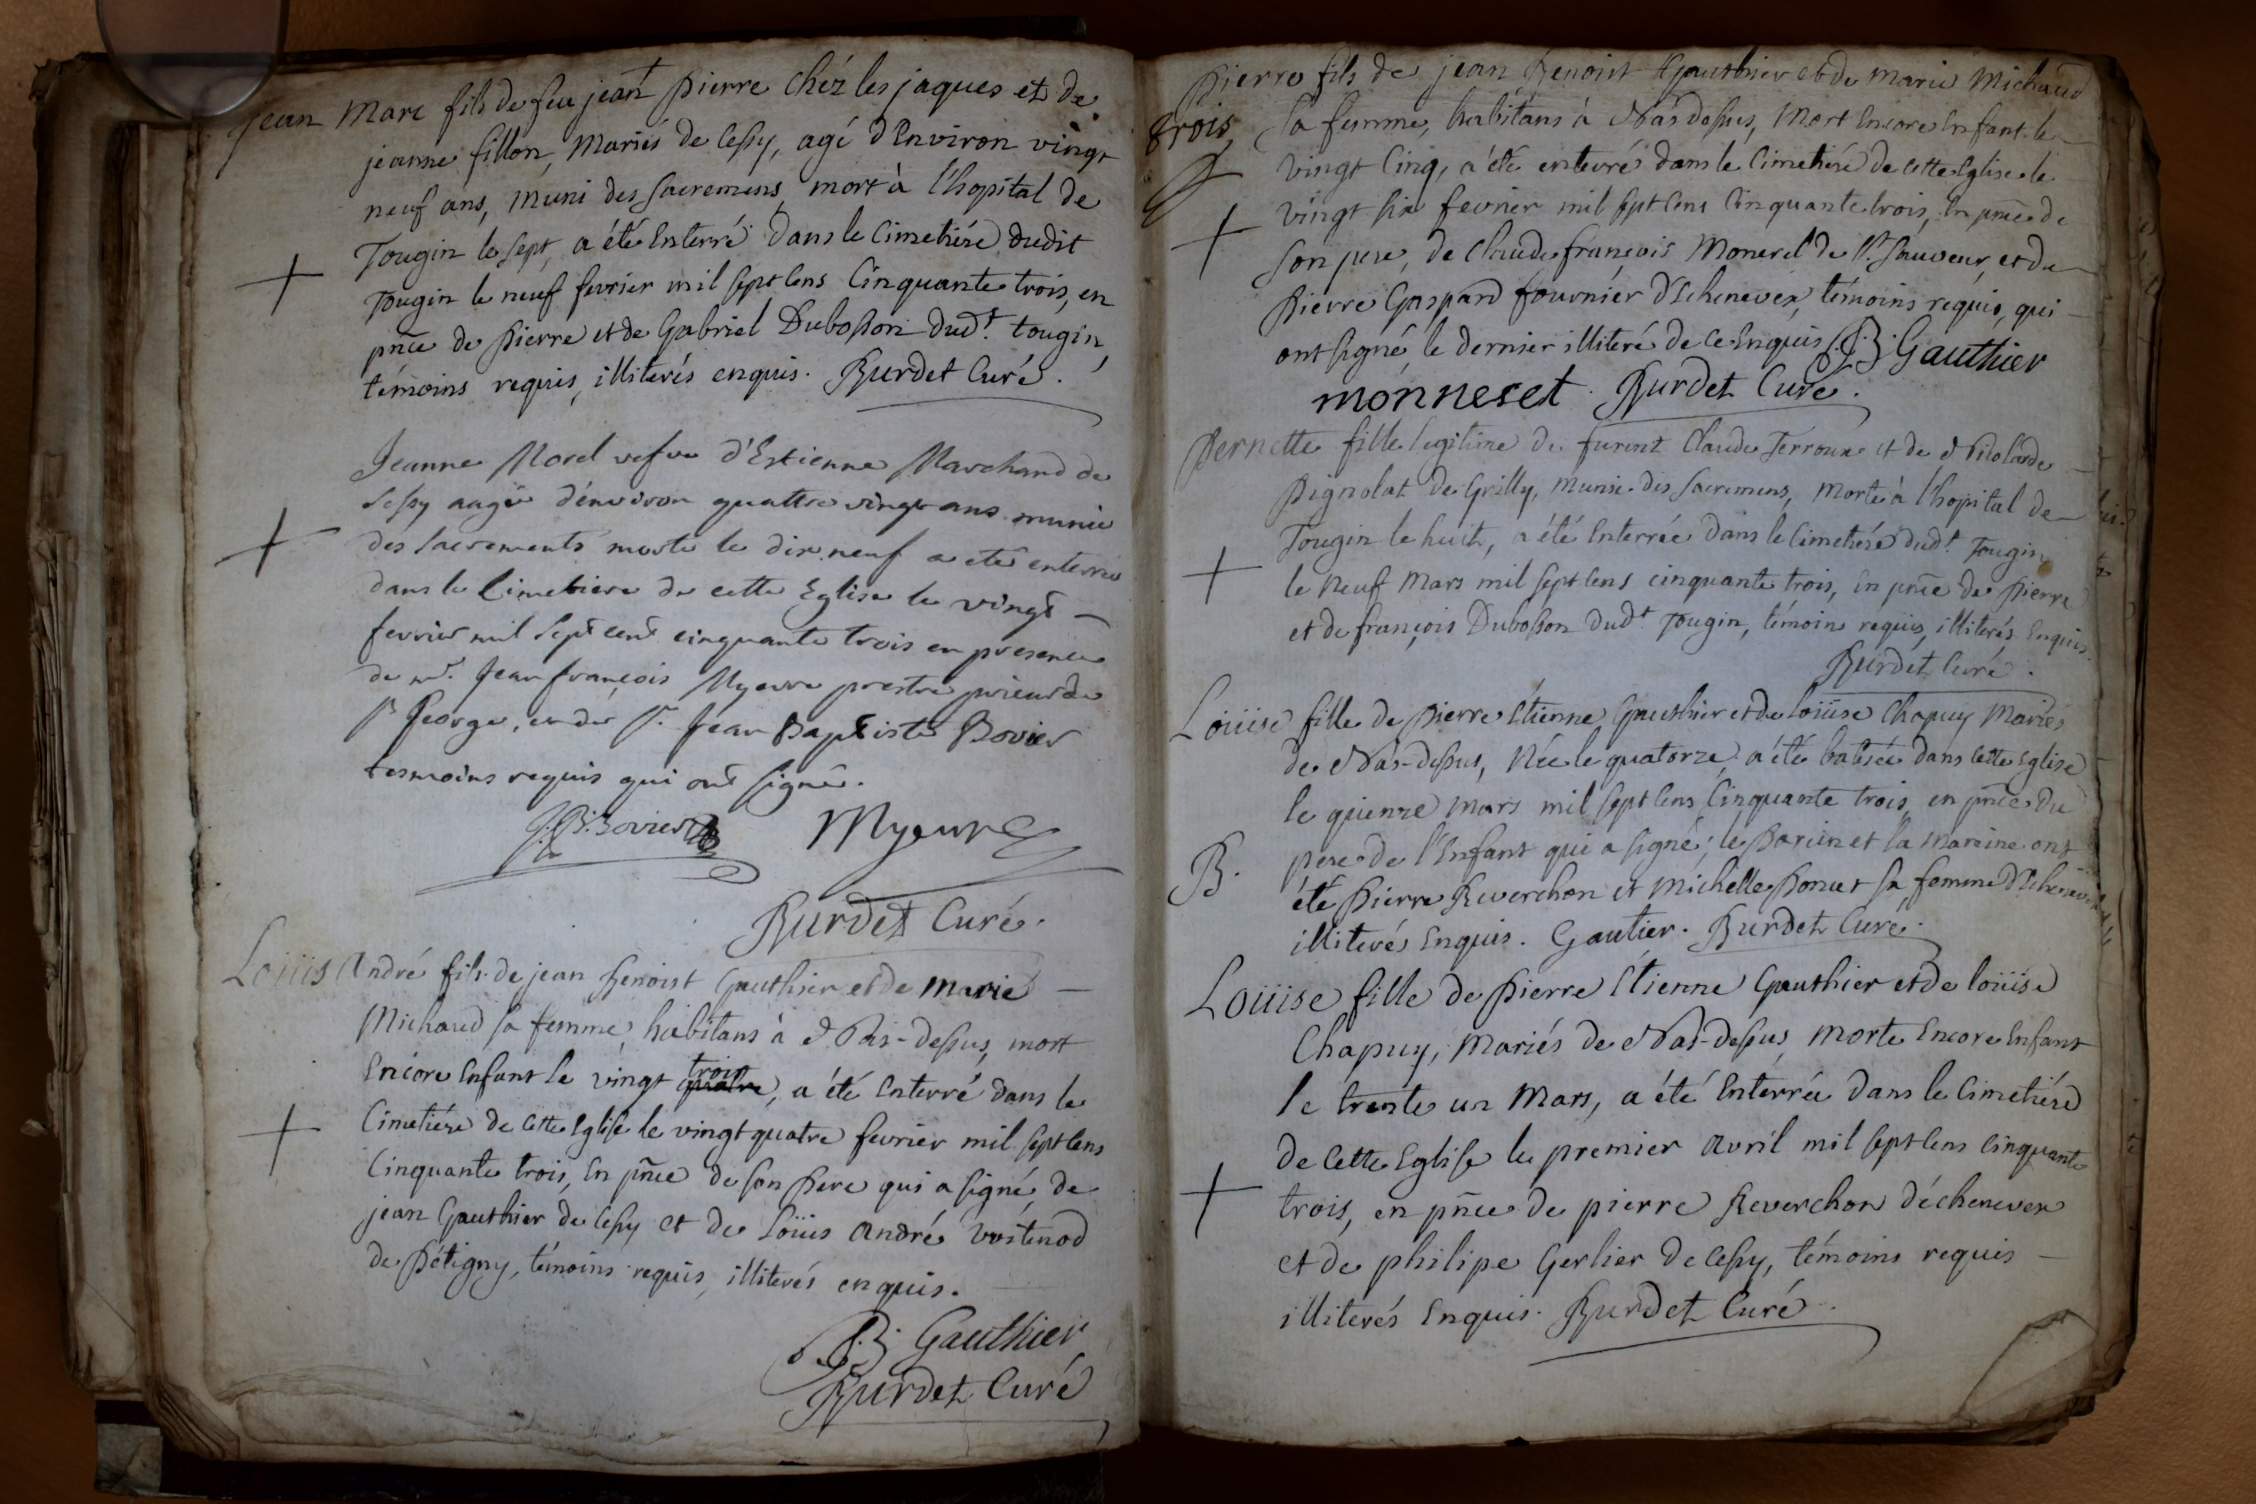 Jean Marc fils de feu jean Pierre chéz les jaques et de
jeanne fillon, Mariés de Cessy, agé d'Environ vingt
neuf ans, Muni des Sacremens, mort à l'hopital de
Tougin le sept, a été Enterré dans le Cimetiére dudit
Tougin le neuf fevrier mil sept Cens Cinquante trois, en
pnce de Pierre et de Gabriel Dubosson dudt. tougin,
témoins requis, illiterés enquis. Burdet Curé.
Jeanne Morel vefve d'Estienne Marchand de
Sessy aagée d'environ quattre vingt ans munie
des sacrements morte le dix neuf a eté enterrée
dans le Cimetiere de cette Eglise le vingt
fevrier mil sept cent cinquante trois en presence
de mr. Jean françois Myeure prestre prieur de
St George, et de Sr. Jean Baptiste Bovier
tesmoins requis qui ont signé.
J.B. Bovier Myeure
Burdet Curé.
Loüis André fils de jean Benoist Gauthier et de Marie
Michaud sa femme, habitans à Nas-dessus, mort
Encore Enfant le vingt quatre trois, a été Enterré dans le
Cimetiére de Cette Eglise le vingt quatre fevrier mil sept Cens
Cinquante trois, En pnce de son Pere qui a signé, de
jean Gauthier de Cessy et de Loüis André
de Pétigny, témoins requis, illiterés enquis.
J.B. Gauthier
Burdet Curé
Pierre fils de jean Benoist Gauthier et de Marie Michaud
trois
sa femme, habitans à Nas dessus, Mort Encore Enfant le
vingt Cinq, a été enterré dans le Cimetiére de Cette Eglise le
vingt six fevrier mil sept Cens Cinquante trois, En pnce de
son pere, de Claude françois Moneret de St. Sauveur, et de
Pierre Gaspard fournier d'Echenevex, témoins requis, qui
ont signé le dernier illiteré de Ce Enquis J.B. Gauthier
monneret. Burdet Curé.
Pernette fille legitime de furent Claude Terroux et de Nicolarde
Pignolat de Grilly, munie des Sacremens, Morte à l'hopital de
Tougin le huit, a été Enterrée dans le Cimetiére dudt. Tougin
le Neuf Mars mil sept Cens cinquante trois, En pnce de Pierre
et de françois Dubosson dudt Tougin, témoins requis, illiterés Enquis.
Burdet Curé.
Loüise fille de Pierre Etienne Gauthier et de Loüise Chapuy Mariés
de Nas-dessus, Née le quatorze, a été batisée dans Cette Eglise
le quinze Mars mil sept Cens Cinquante trois, en pnce du
B.
pere de l'Enfant qui a signé; le Parein et la Mareine ont
été Pierre Reverchon et Michelle Ponet sa femme d'Echenevex
illiterés Enquis. Gautier. Burdet Curé.
Loüise fille de Pierre Etienne Gauthier et de loüise
Chapuy, Mariés de Nas-dessus, Morte Encore Enfant
le trente un Mars, a été Enterrée dans le Cimetiére
de Cette Eglise le premier Avril mil sept Cens Cinquante
trois, en pnce de pierre Reverchon déchenevex
et de philipe Gerlier de Cessy, témoins requis
illiterés Enquis. Burdet Curé.